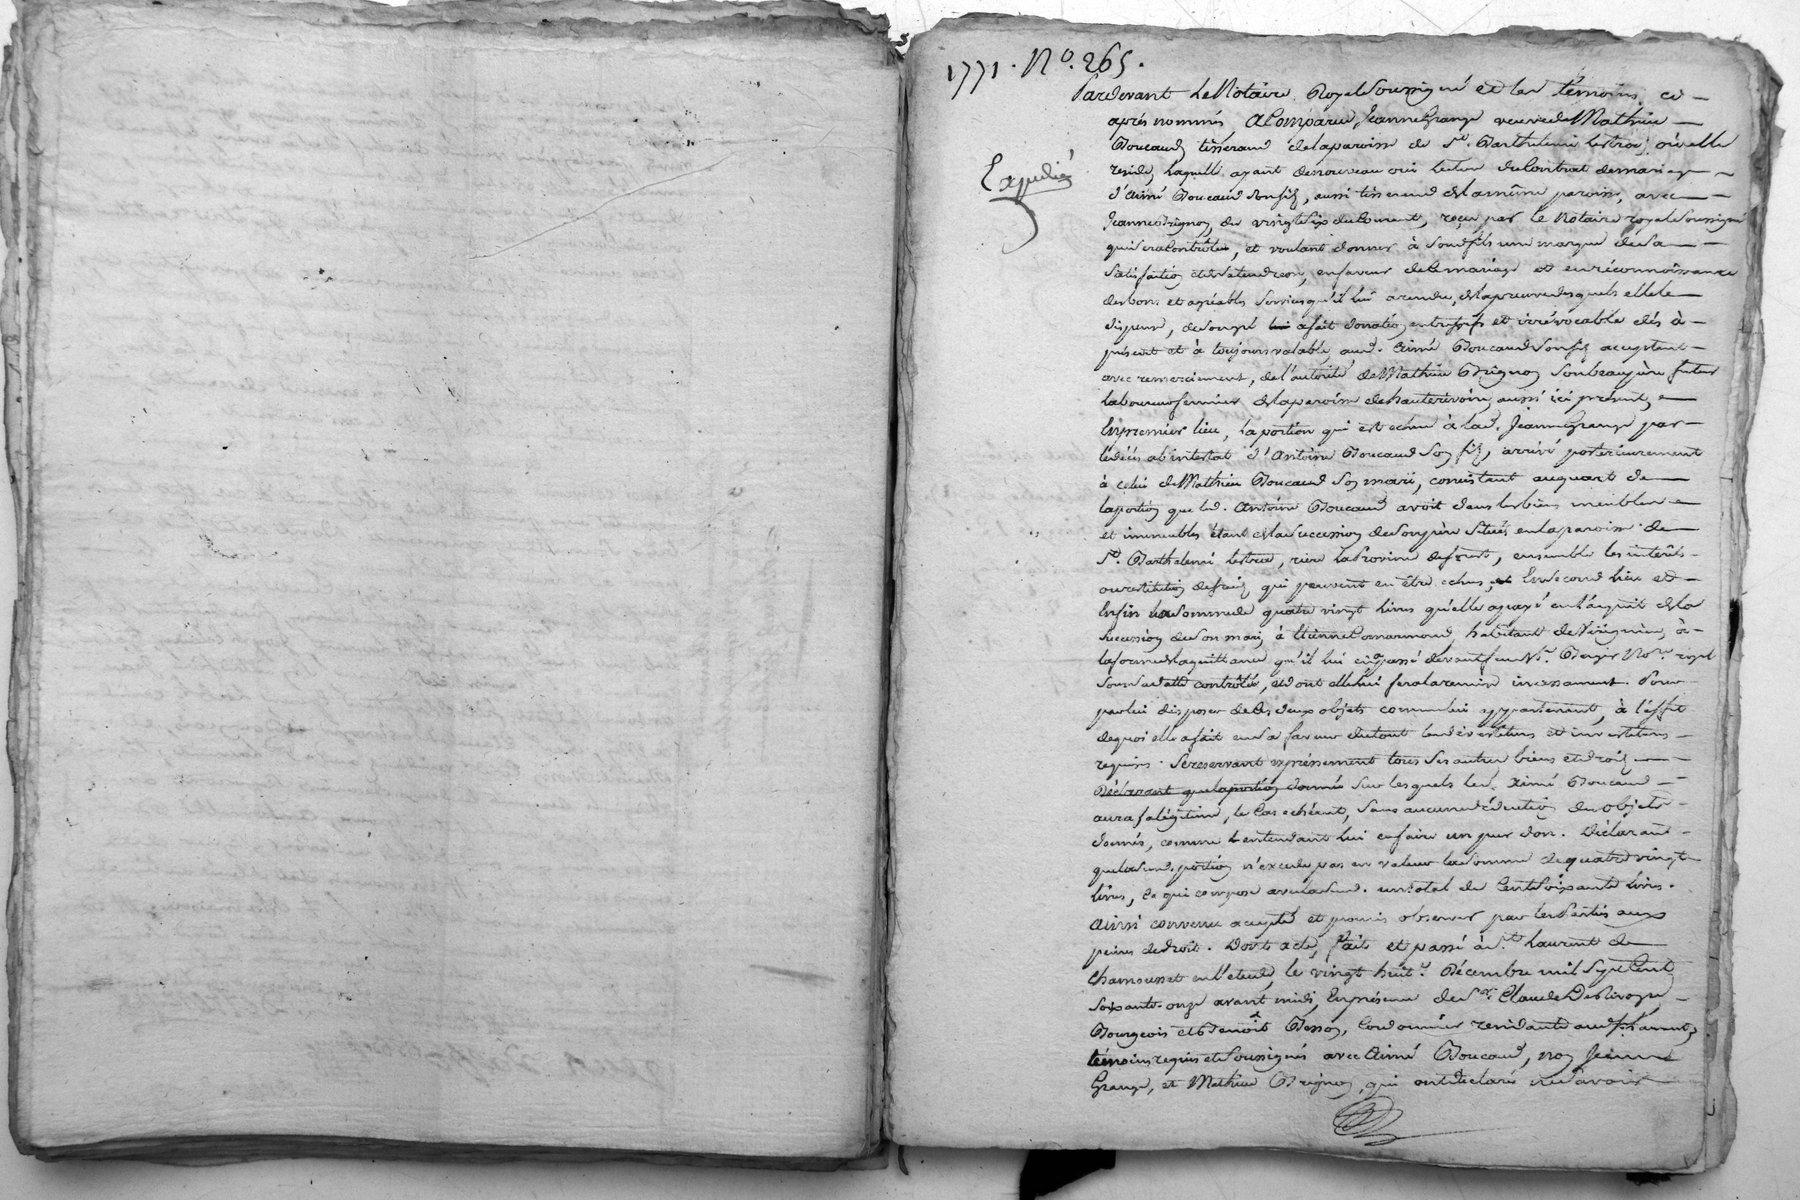 1771. No. 265.
Pardevant Le Notaire Royal Soussigné et les témoins ci
après nommés, a Comparue Jeanne Grange veuve de Mathieu
Boucaud tisserand de la paroisse de St. Barthelemi Lestra, où elle
Expedié
reside, Laquelle ayant de nouveau oui lecture du Contrat de mariage
d'Aimé Boucaud Son fils, aussi tisserand de la même paroisse, avec
Jeanne Brignon, du vingt Six du Courant, reçu par le Notaire royal Soussigné
qui Sera Controlé, et voulant donner à Son d. fils une marque de Sa
Satisfaction et de Sa tendresse, en faveur de Ce mariage et en réconnoissance
des bons et agréables Services qu'il lui a rendu, de la preuve desquels elle le
dispense, de son gré a fait donation entre vifs et irrévocable dès à
présent et à toujours valable, aud. Aimé Boucaud Son fils acceptant
avec remerciement, de l'autorité de Mathieu Brignon Son beaupère futur
Laboureur fermier de la paroisse de hauterivoire, aussi ici present,
En premier lieu, La portion qui est echue à lad. Jeanne Grange par
le décès ab intestat d'Antoine Boucaud Son fils, arrivé postérieurement
à celui de Mathieu Boucaud Son mari, consistant au quart de
la portion que led. Antoine Boucaud avoit dans les biens meubles
et immeubles étant de la Succession de Son père Situés en la paroisse de
St. Barthelemi Lestra, riere La Province de forest, ensemble les intérêts
ou restitution de fruits qui peuvent en être echus, En Second lieu et
Enfin la Somme de quatre vingt Livres qu'elle a payé en l'acquit de la
Succession de Son mari, à Etienne Comarmond, habitant de Virignieu, à
la forme de la quittance qu'il lui en a passé devant feu Me. Berger Nore. royal
Sous Sa datte controllée, et dont elle lui fera la remise incessament. Pour
par lui disposer de Ces deux objets comme lui appartenant, à l'effet
de quoi elle a fait en Sa faveur les devestitures et investitures
requises. Se reservant expréssement tous Ses autres biens et droits
Déclarant que la portion donnée Sur lesquels led. Aimé Boucaud
aura Sa légitime, le Cas echéant, Sans aucune déduction des objets
donnés, comme entendant lui en faire un pur don. Déclarant
que la Susd. portion n'excede pas en valeur la Somme de quatre vingt
livres, Ce qui compose avec la Susd. un total de Cent Soixante livres.
Ainsi convenu accepté et promis observer par les Parties aux
peines de droit. Dont acte, fait et passé à St. Laurent de
Chamousset en l'etude, le vingt huit. Décembre mil Sept Cent
Soixante-onze avant midi, En présence de Sr. Claude
Bourgeois et Benoit Besson, Cordonnier residants aud. St. Laurent,
témoins requis et Soussignés avec Aimé Boucaud, non Jeanne
Grange, et Mathieu Brignon, qui ont déclaré ne Savoir